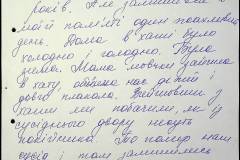 років. Але залишився в
моїй пам'яті один похмурий
день. Дома в хаті було
холодно і голодно. Була
зима. Мама мовчки зайшла
в хату, обняла нас дітей і
довго плакала. Вийшовши з
хати ми побачили, як із
сусіднього двору несуть
покійника. То помер наш
сусід, а там залишилися